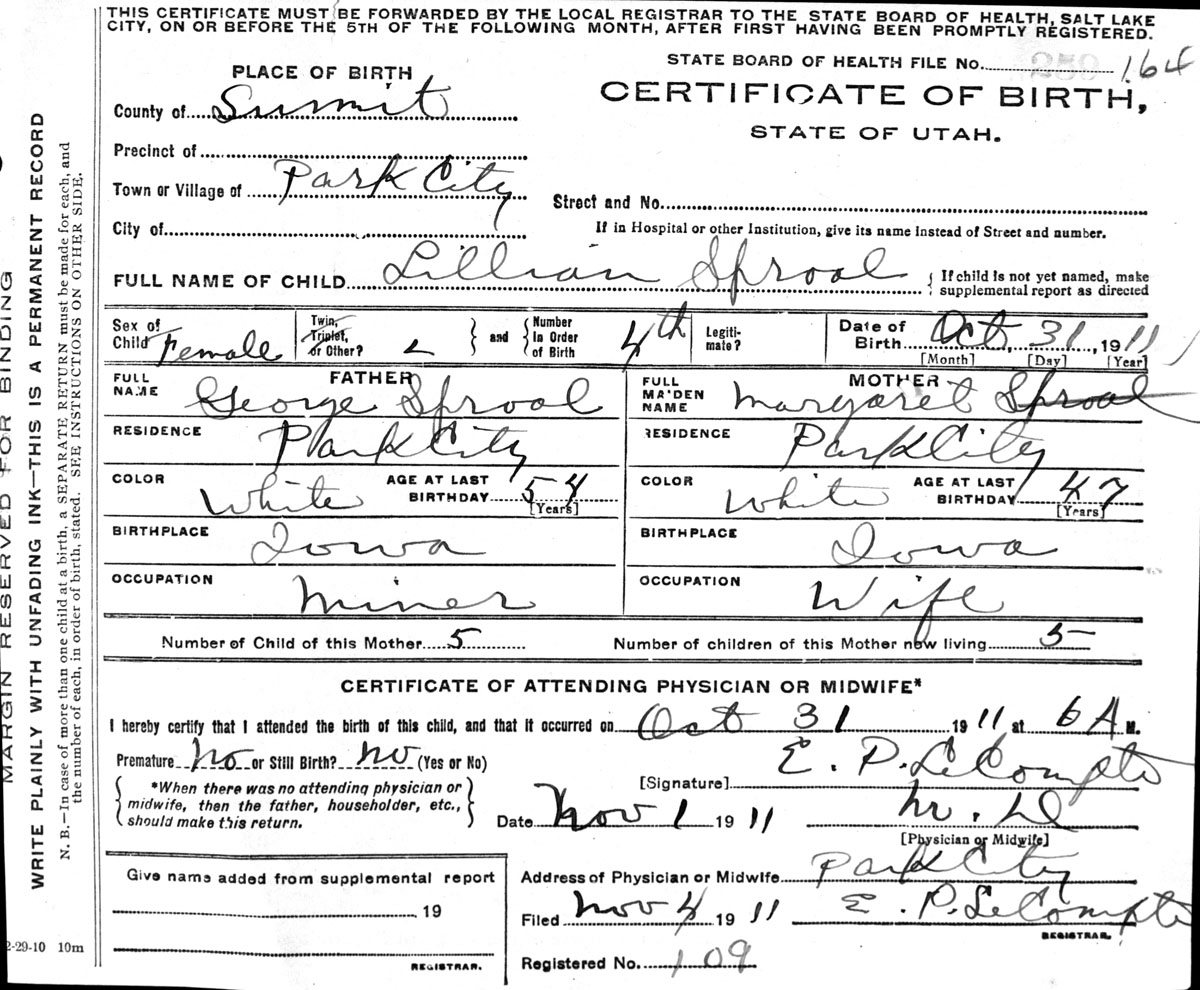 THIS CERTIFICATE MUST BE FORWARDED BY THE LOCAL REGISTRAR TO THE STATE BOARD OF HEALTH, SALT LAKE
CITY, ON OR BEFORE THE 5TH OF THE FOLLOWING MONTH, AFTER FIRST HAVING BEEN PROMPTLY REGISTERED.
STATE BOARD OF HEALTH FILE NO. 259 164
PLACE OF BIRTH
CERTIFICATE OF BIRTH,
STATE OF UTAH.
County of Summit
Precinct of
Town or Village of Park City
Street and No.
City of
If in Hospital or other Institution, give its name instead of Street and number.
FULL NAME OF CHILD Lillian Sprool
{ If child is not yet named, make
supplemental report as directed
Sex of
Child Female
Twin,
Triplet,
or Other?
} and {
Number
In Order
of Birth 4th
Legiti-
mate?
Date of
Birth Oct, 31, 1911
[Month] [Day] [Year]
FATHER
FULL
NAME George Sprool
MOTHER
FULL
MAIDEN
NAME Margaret Sprool
RESIDENCE Park City
RESIDENCE Park City
COLOR White AGE AT LAST
BIRTHDAY 54
[Years]
COLOR White AGE AT LAST
BIRTHDAY 47
[Years]
BIRTHPLACE Iowa
BIRTHPLACE Iowa
OCCUPATION Miner
OCCUPATION Wife
Number of Child of this Mother 5 Number of children of this Mother now living 5
CERTIFICATE OF ATTENDING PHYSICIAN OR MIDWIFE*
I hereby certify that I attended the birth of this child, and that it occurred on Oct 31 1911 at 6 A M.
Premature no or Still Birth? no (Yes or No)
[Signature] E. P. LeCompte
{ *When there was no attending physician or
midwife, then the father, householder, etc.,
should make this return. }
Date Nov 1 1911 M. D
[Physician or Midwife]
Give name added from supplemental report
19
REGISTRAR.
Address of Physician or Midwife Park City
Filed Nov 4 1911 E. P. LeCompte
REGISTRAR.
Registered No. 109
MARGIN RESERVED FOR BINDING
WRITE PLAINLY WITH UNFADING INK—THIS IS A PERMANENT RECORD
N. B.—In case of more than one child at a birth, a SEPARATE RETURN must be made for each, and
the number of each, in order of birth, stated. SEE INSTRUCTIONS ON OTHER SIDE.
2-29-10 10m